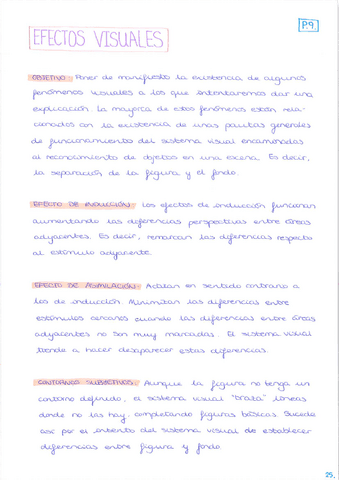 P.9
EFECTOS VISUALES
OBJETIVO: Poner de manifiesto la existencia de algunos
fenómenos visuales a los que intentaremos dar una
explicación. La mayoría de estos fenómenos están rela-
cionados con la existencia de unas pautas generales
de funcionamiento del sistema visual encaminadas
al reconocimiento de objetos en una escena. Es decir,
la separación de la figura y el fondo.
EFECTO DE INDUCCIÓN: Los efectos de inducción funcionan
aumentando las diferencias perspectivas entre áreas
adyacentes. Es decir, remarcan las diferencias respecto
al estímulo adyacente.
EFECTO DE ASIMILACIÓN: Actúan en sentido contrario a
los de inducción. Minimizan las diferencias entre
estímulos cercanos cuando las diferencias entre áreas
adyacentes no son muy marcadas. El sistema visual
tiende a hacer desaparecer estas diferencias.
CONTORNOS SUBJETIVOS: Aunque la figura no tenga un
contorno definido, el sistema visual "traza" líneas
donde no las hay, completando figuras básicas. Sucede
así por el intento del sistema visual de establecer
diferencias entre figura y fondo.
25.